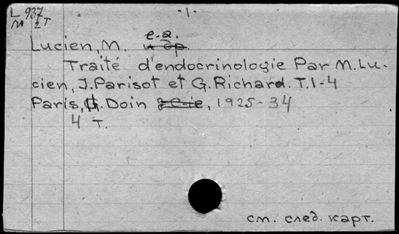 L 937
M 2T
-1-
e.a.
Lucien, M. и др.
Traité d'endocrinologie Par M. Lu-
cien, J. Parisot et G. Richard. T.1-4
Paris, G. Doin et Cie, 1925-34
4 T.
см. след. карт.